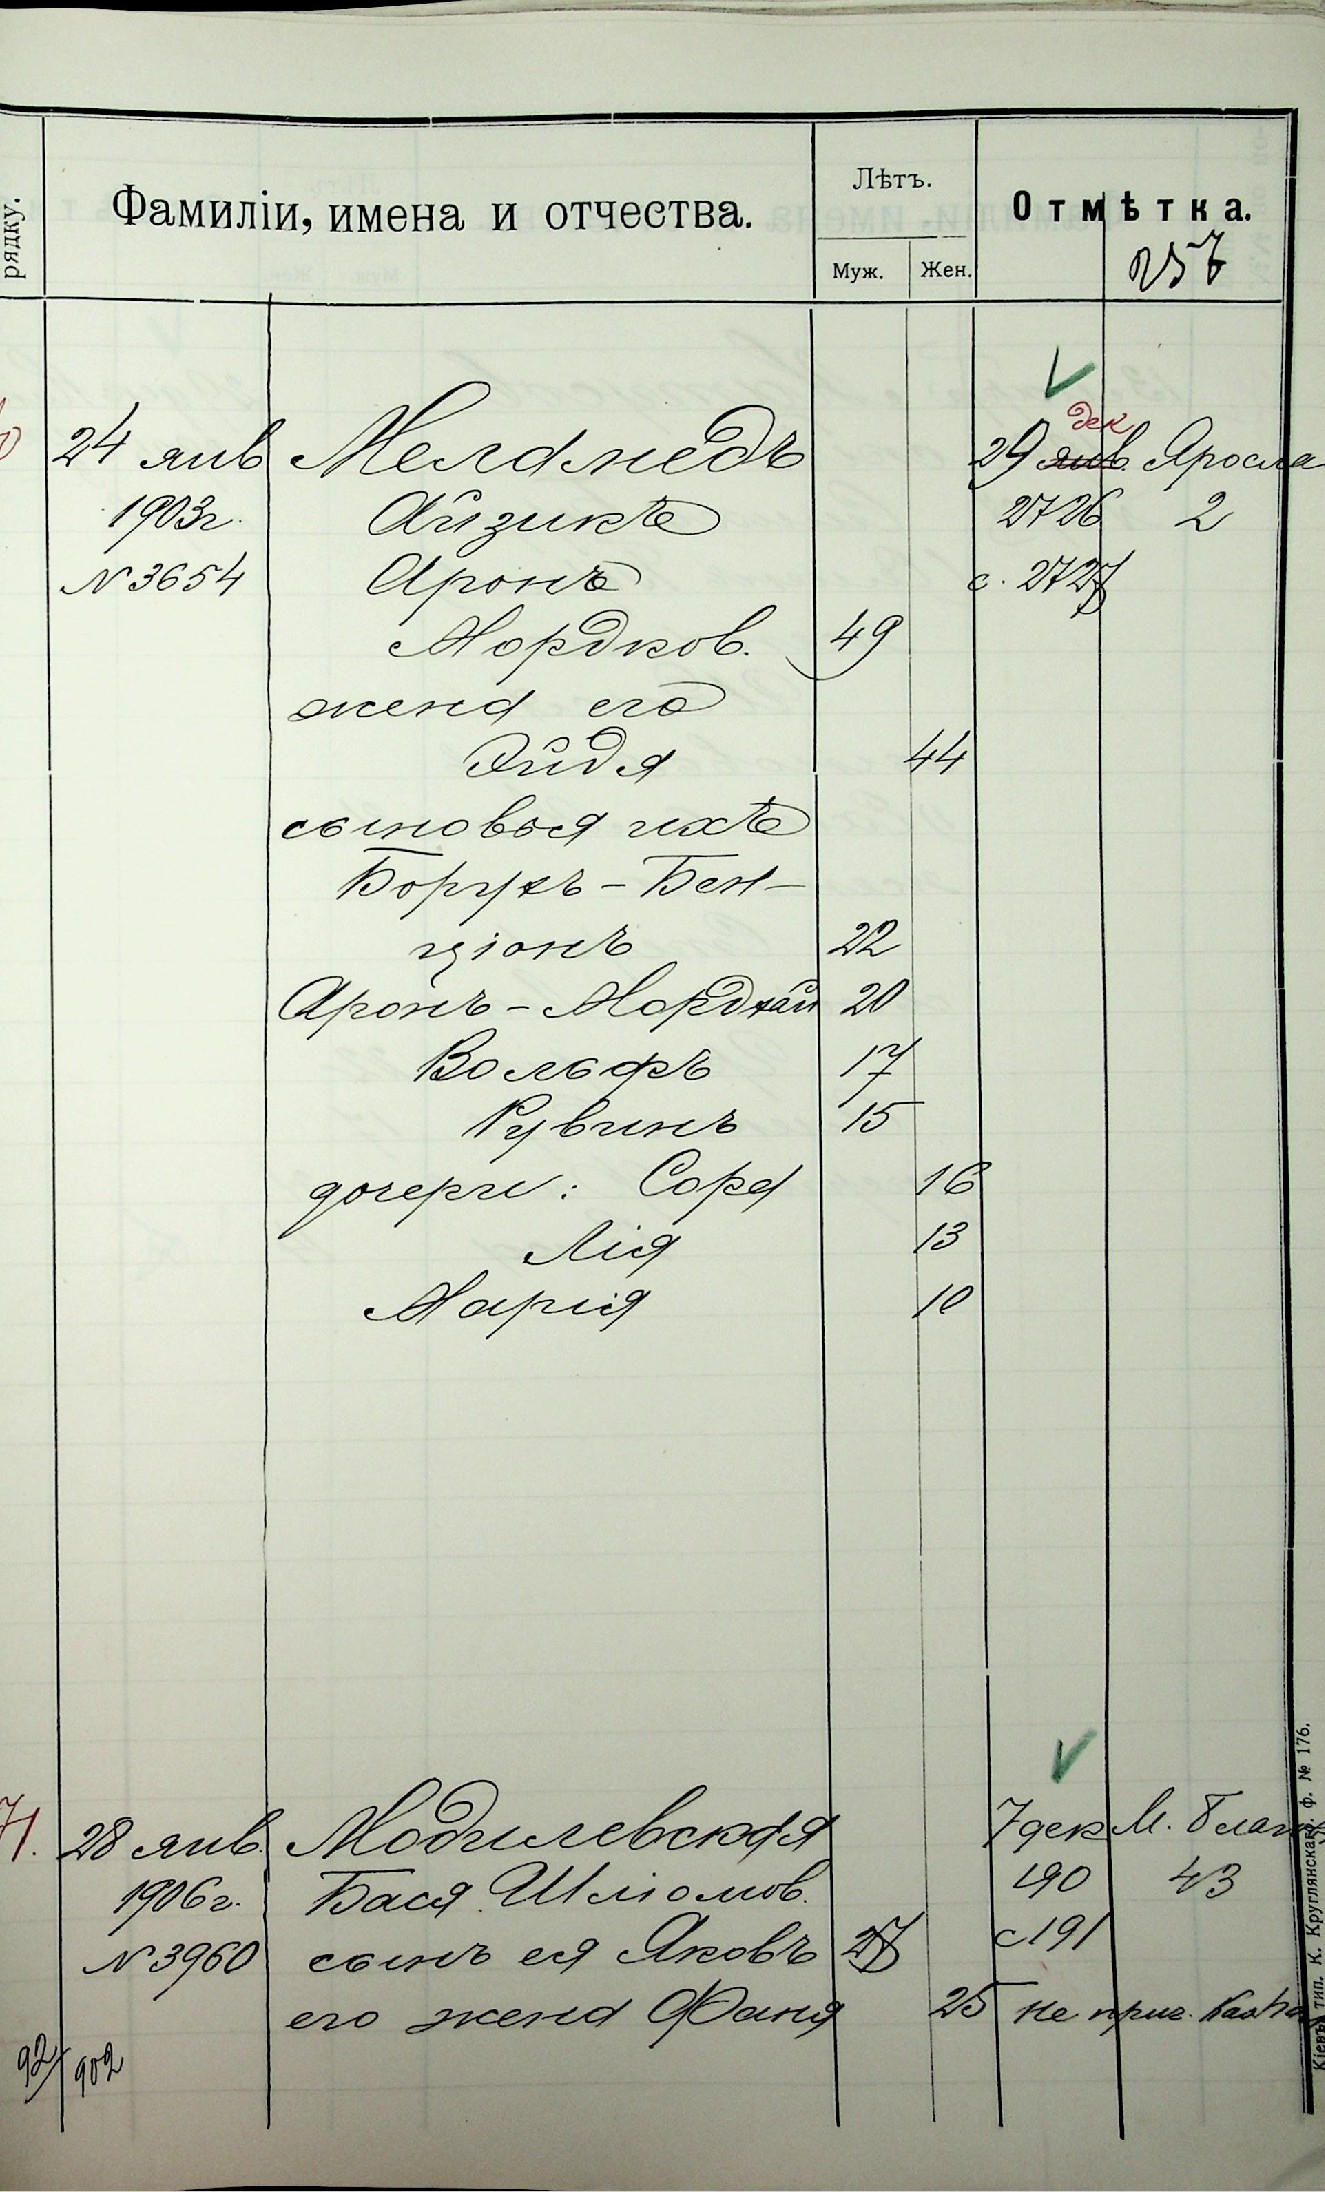 рядку.
Фамиліи, имена и отчества.
Лѣтъ.
Муж. Жен.
Отмѣтка.
257
24 янв Меламедъ 29 янв. дек Яросла
1903г. Айзикъ 2726 2
N 3654 Аронъ с. 2727
Мордков. 49
жена его
Эйдя 44
сыновья ихъ
Борухъ-Бен-
ціонъ 22
Аронъ-Мордхай 20
Вольфъ 17
Рувинъ 15
дочери: Сора 16
Лія 13
Марія 10
71. 28 янв. Могилевская 7 дек М. Благ
1906г. Бася Шліомов. 190 43
N 3960 сынъ ея Яковъ 27 с 191
его жена Фаня 25 не приг.
92/902
Кіевъ, тип. К. Круглянскаго ф. № 176.